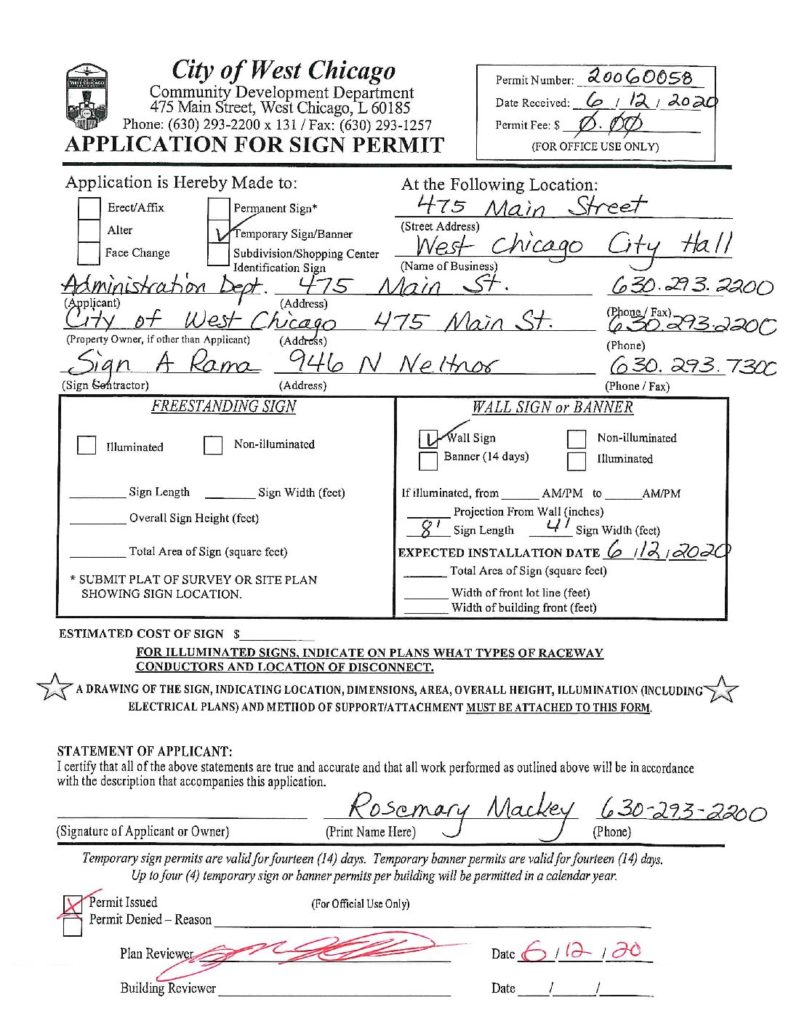 City of West Chicago
Community Development Department
475 Main Street, West Chicago, L 60185
Phone: (630) 293-2200 x 131 / Fax: (630) 293-1257
APPLICATION FOR SIGN PERMIT
Permit Number: 20060058
Date Received: 6 / 12 / 2020
Permit Fee: $ 0.00
(FOR OFFICE USE ONLY)
Application is Hereby Made to:
Erect/Affix Permanent Sign*
Alter Temporary Sign/Banner
Face Change Subdivision/Shopping Center
Identification Sign
At the Following Location:
475 Main Street
(Street Address)
West Chicago City Hall
(Name of Business)
Administration Dept. 475 Main St. 630.293.2200
(Applicant) (Address) (Phone / Fax)
City of West Chicago 475 Main St. 630.293.2200
(Property Owner, if other than Applicant) (Address) (Phone)
Sign A Rama 946 N Neltnor 630.293.7300
(Sign Contractor) (Address) (Phone / Fax)
FREESTANDING SIGN
Illuminated Non-illuminated
Sign Length Sign Width (feet)
Overall Sign Height (feet)
Total Area of Sign (square feet)
* SUBMIT PLAT OF SURVEY OR SITE PLAN
SHOWING SIGN LOCATION.
WALL SIGN or BANNER
Wall Sign Non-illuminated
Banner (14 days) Illuminated
If illuminated, from ______ AM/PM to ______ AM/PM
Projection From Wall (inches)
8' Sign Length 4' Sign Width (feet)
EXPECTED INSTALLATION DATE 6 / 12 / 2020
Total Area of Sign (square feet)
Width of front lot line (feet)
Width of building front (feet)
ESTIMATED COST OF SIGN $
FOR ILLUMINATED SIGNS, INDICATE ON PLANS WHAT TYPES OF RACEWAY
CONDUCTORS AND LOCATION OF DISCONNECT.
A DRAWING OF THE SIGN, INDICATING LOCATION, DIMENSIONS, AREA, OVERALL HEIGHT, ILLUMINATION (INCLUDING
ELECTRICAL PLANS) AND METHOD OF SUPPORT/ATTACHMENT MUST BE ATTACHED TO THIS FORM.
STATEMENT OF APPLICANT:
I certify that all of the above statements are true and accurate and that all work performed as outlined above will be in accordance
with the description that accompanies this application.
Rosemary Mackey 630-293-2200
(Signature of Applicant or Owner) (Print Name Here) (Phone)
Temporary sign permits are valid for fourteen (14) days. Temporary banner permits are valid for fourteen (14) days.
Up to four (4) temporary sign or banner permits per building will be permitted in a calendar year.
X Permit Issued (For Official Use Only)
Permit Denied – Reason
Plan Reviewer Date 6 / 12 / 20
Building Reviewer Date / /